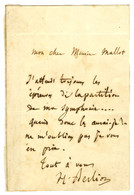 mon cher Monsieur Mallot
J'attends toujours les
épreuves de la partition
de ma symphonie....
quand donc les aurai-je?..
ne m'oubliez pas je vous
en prie.
Tout à vous
H. Berlioz